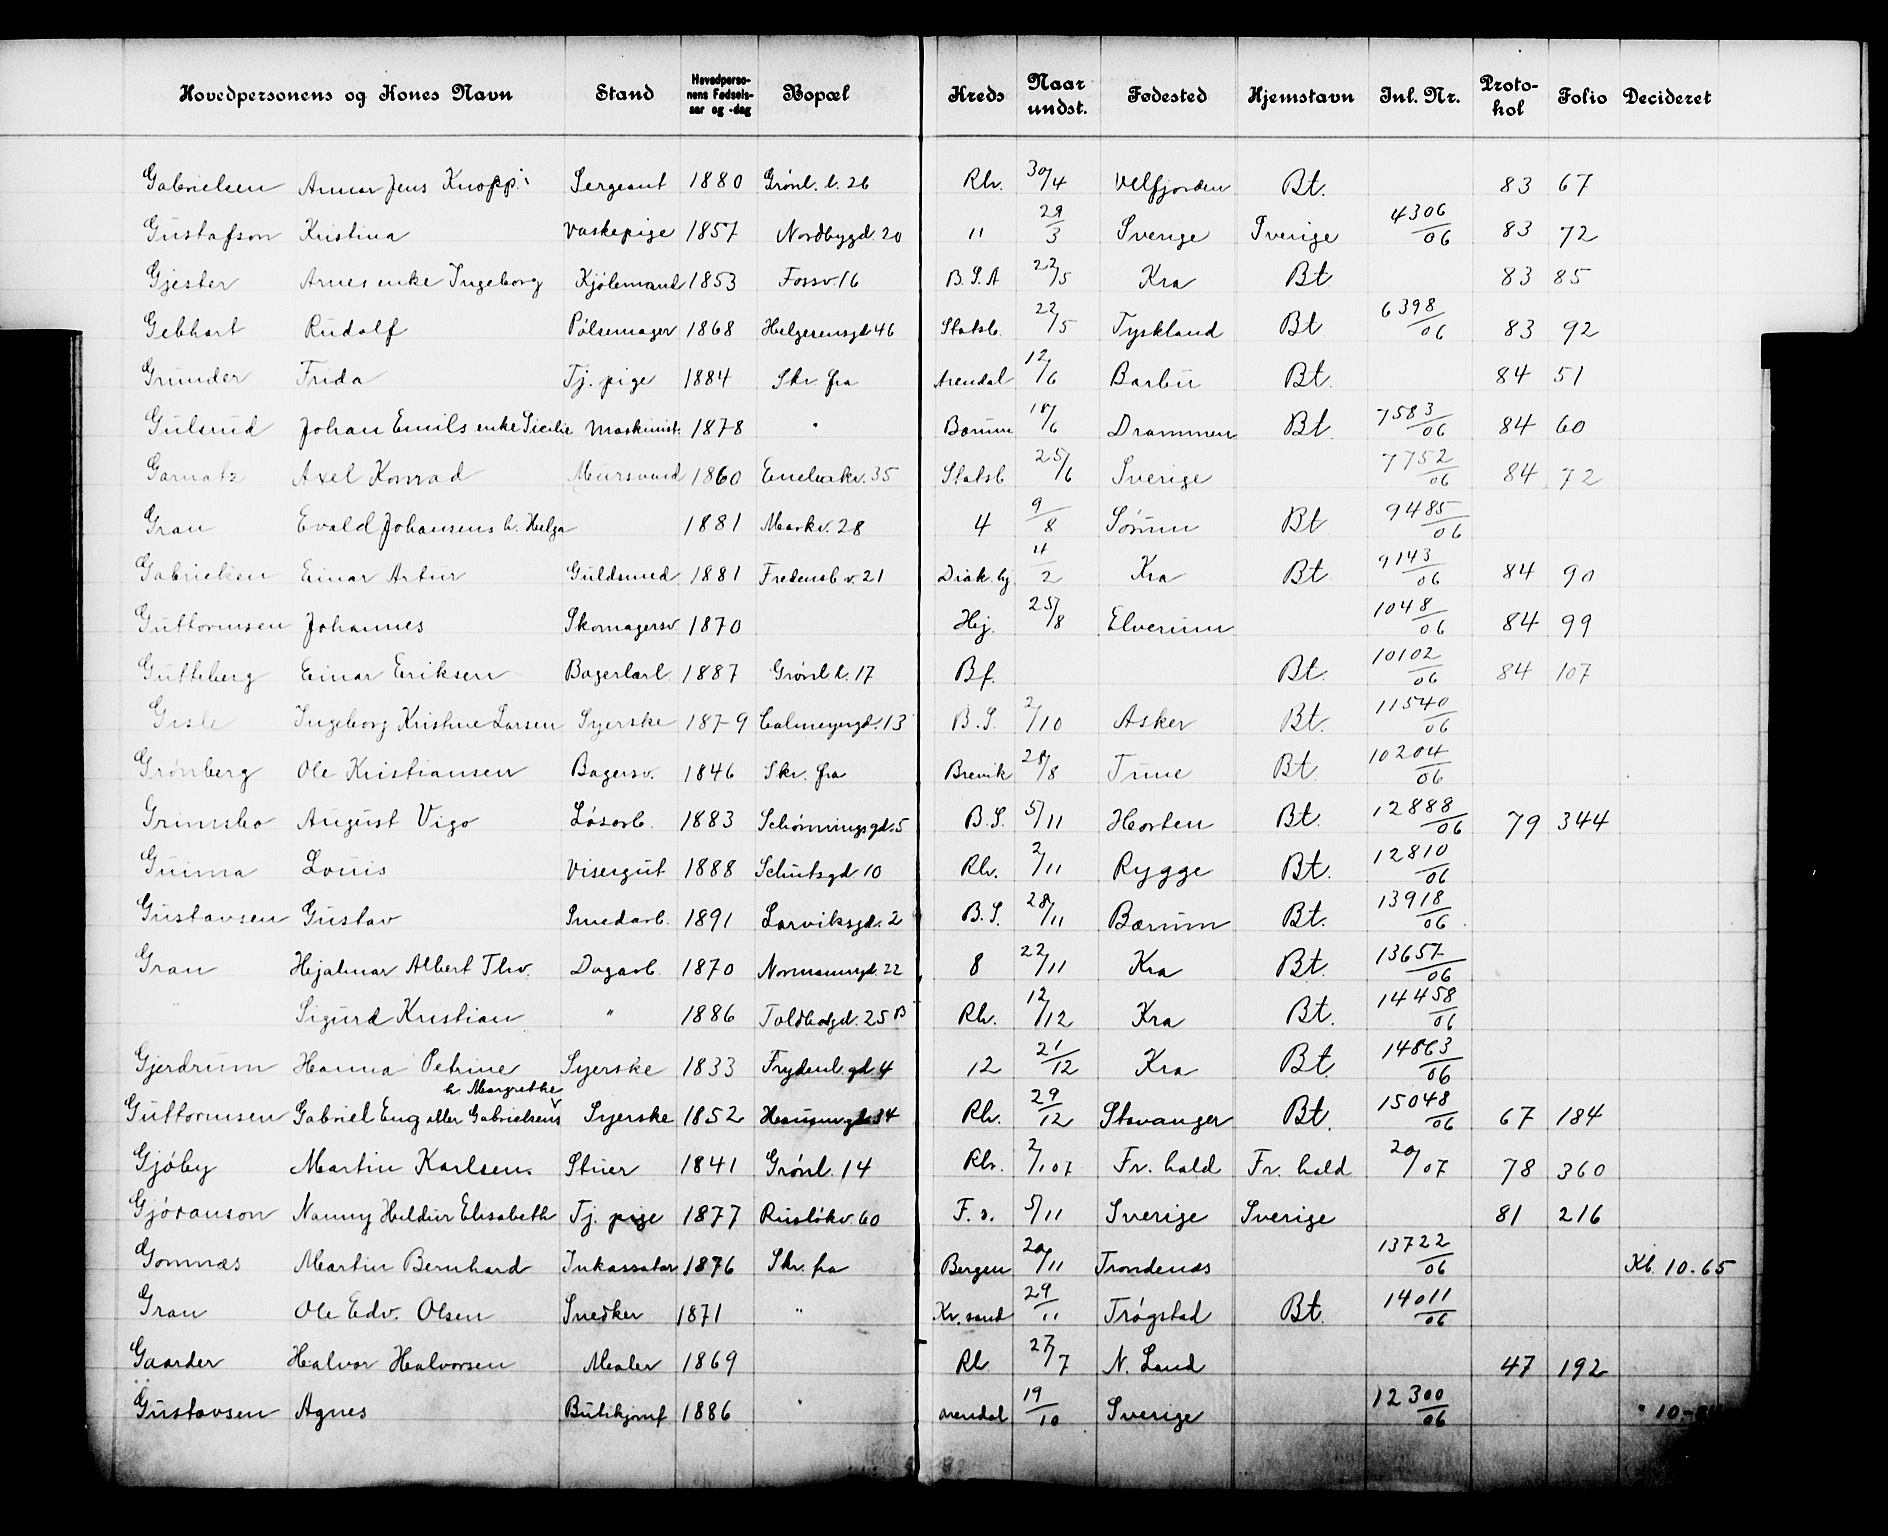 Hovedpersonens og Kones Navn Stand Hovedperso-nens Fødsels-aar og -dag Bopæl Kreds Naar undst. Fødested Hjemstavn Inl. Nr. Proto-kol Folio Decideret
Gabrielsen Annar Jens Knopp Sergeant 1880 Grønl. l. 26 Rh. 30/4 Velfjorden Bt. 83 67
Gustafson Kristina Vaskepige 1857 Nordbygd. 20 " 29/3 Sverige Sverige 4306/06 83 72
Gjester Arnes enke Ingeborg Kjøbmand 1853 Fossv. 16 B.S.A 22/5 Kra Bt 83 85
Gebhart Rudolf Pølsemager 1868 Helgesensgd 46 Statsb. 22/5 Tyskland Bt 6398/06 83 92
Grunder Frida Tj. pige 1884 Skr. fra Arendal 12/6 Barbu Bt. 84 51
Gulsrud Johan Emils enke Sicilie Maskinist. 1878 " Bærum 18/6 Drammen Bt. 7583/06 84 60
Garnatz Axel Konrad Mursvend 1860 35 Statsb. 25/6 Sverige 7752/06 84 72
Gran Evald Johansens h. Helga 1881 Markv. 28 4 9/8 Sørum Bt 9485/06
Gabrielsen Einar Artur Guldsmed 1881 Fredensb v. 21 Diak. hj 11/2 Kra Bt 9143/06 84 90
Guttormsen Johannes Skomagersv. 1870 Hej. 25/8 Elverum 1048/06 84 99
Gutteberg Einar Eriksen Bagerlærl. 1887 Grønl l. 17 Bf. Bt. 10102/06 84 107
Gisle Ingeborg Kristine Larsen Syerske 1879 Calmeyergd. 13 B.S. 2/10 Asker Bt. 11540/06
Grønberg Ole Kristiansen Bagersv. 1846 Skr. fra Brevik 28/8 Tune Bt. 10204/06
Grimsbo August Vigo Løsarb. 1883 Schønningsgd. 5 B.S. 5/11 Horten Bt. 12888/06 79 344
Guima Louis Visergut 1888 Schutsgd 10 Rh. 2/11 Rygge Bt. 12810/06
Gustavsen Gustav Smedarb. 1891 Larviksgd. 2 B.S. 28/11 Bærum Bt. 13918/06
Gran Hjalmar Albert Thv. Dagarb. 1870 Normannsgd. 22 8 22/11 Kra Bt. 13657/06
" Sigurd Kristian " 1886 Toldbodgd. 25 B Rh. 12/12 Kra Bt. 14458/06
Gjerdrum Hanna Petrine Syerske 1833 Frydenl. gd. 4 12 21/12 Kra Bt. 14863/06
h. Margrethe
Guttormsen Gabriel Eng eller Gabrielsens Syerske 1852 Hausmgd. 34 Rh. 29/12 Stavanger Bt. 15048/06 67 184
Gjøby Martin Karlsen. Stuer 1841 Grønl. 14 Rh. 2/1 07 Fr. hald Fr. hald 20/07 78 360
Gjøranson Nanny Hildur Elisabeth Tj. pige 1877 Rusløkv. 60 F. s. 5/11 Sverige Sverige 81 216
Gomnæs Martin Bernhard Inkassator 1876 Skr. fra Bergen 20/11 Trondenæs 13722/06 Kl. 10-65
Gran Ole Edv. Olsen Snedker 1871 " Kr. sand 29/11 Trøgstad Bt. 14011/06
Gaarder Halvor Halvorsen Maler 1869 Rh. 27/7 N. Land 47 192
Gustavsen Agnes Butikjomf 1886 " Arendal 19/10 Sverige 12300/06 " 10-